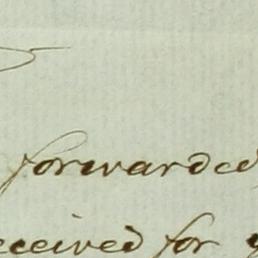 forwarded,
received for